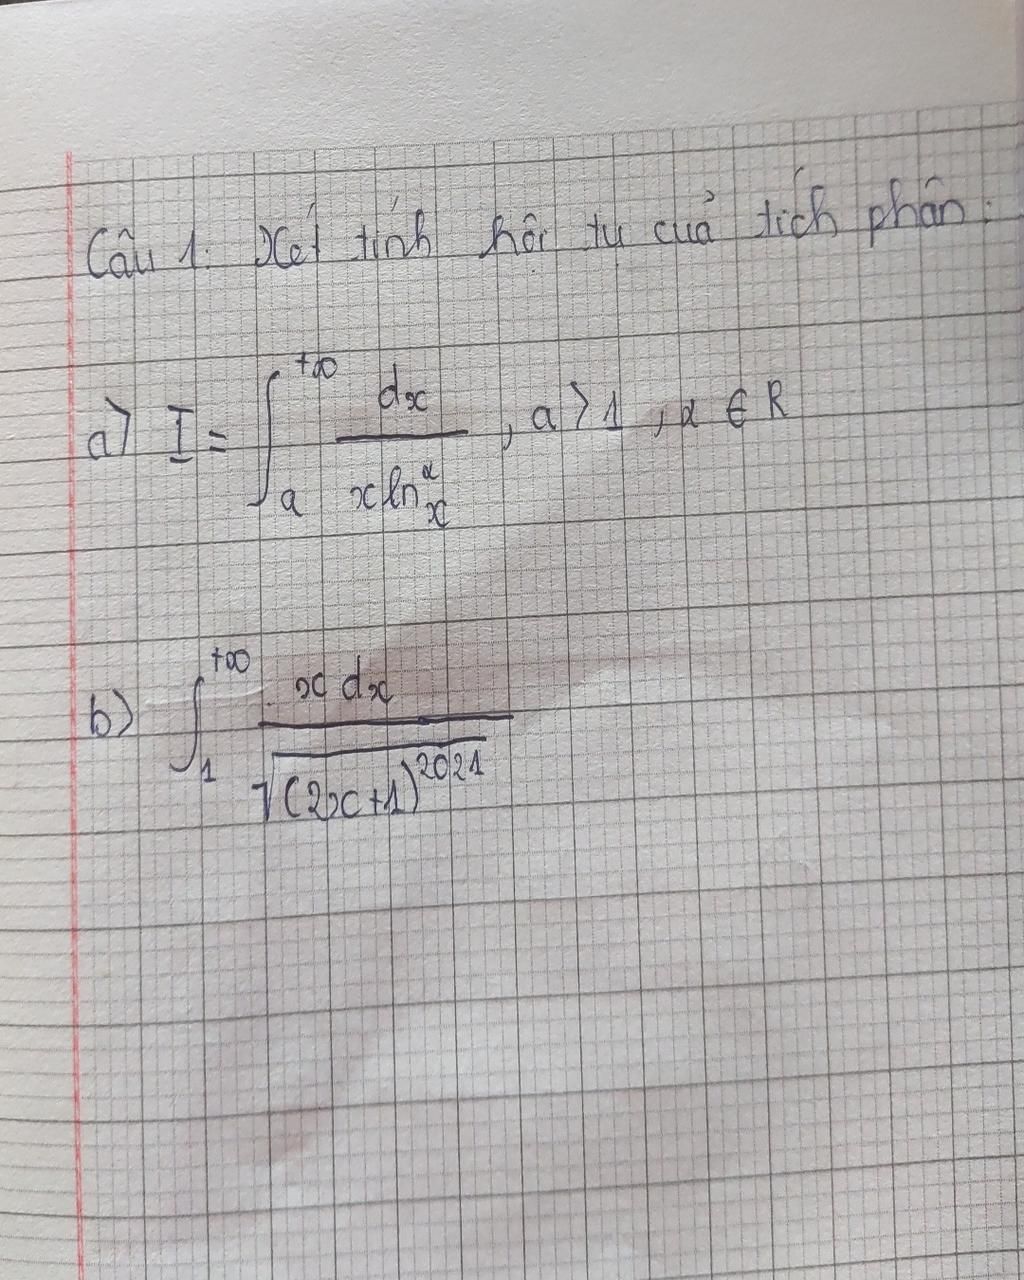 Câu 1. Xét tính hội tụ của tích phân:
a) I = ∫_a^{+∞} dx / (x ln^α x), a > 1, α ∈ R
b) ∫_1^{+∞} x dx / √((2x+1)^{2021})